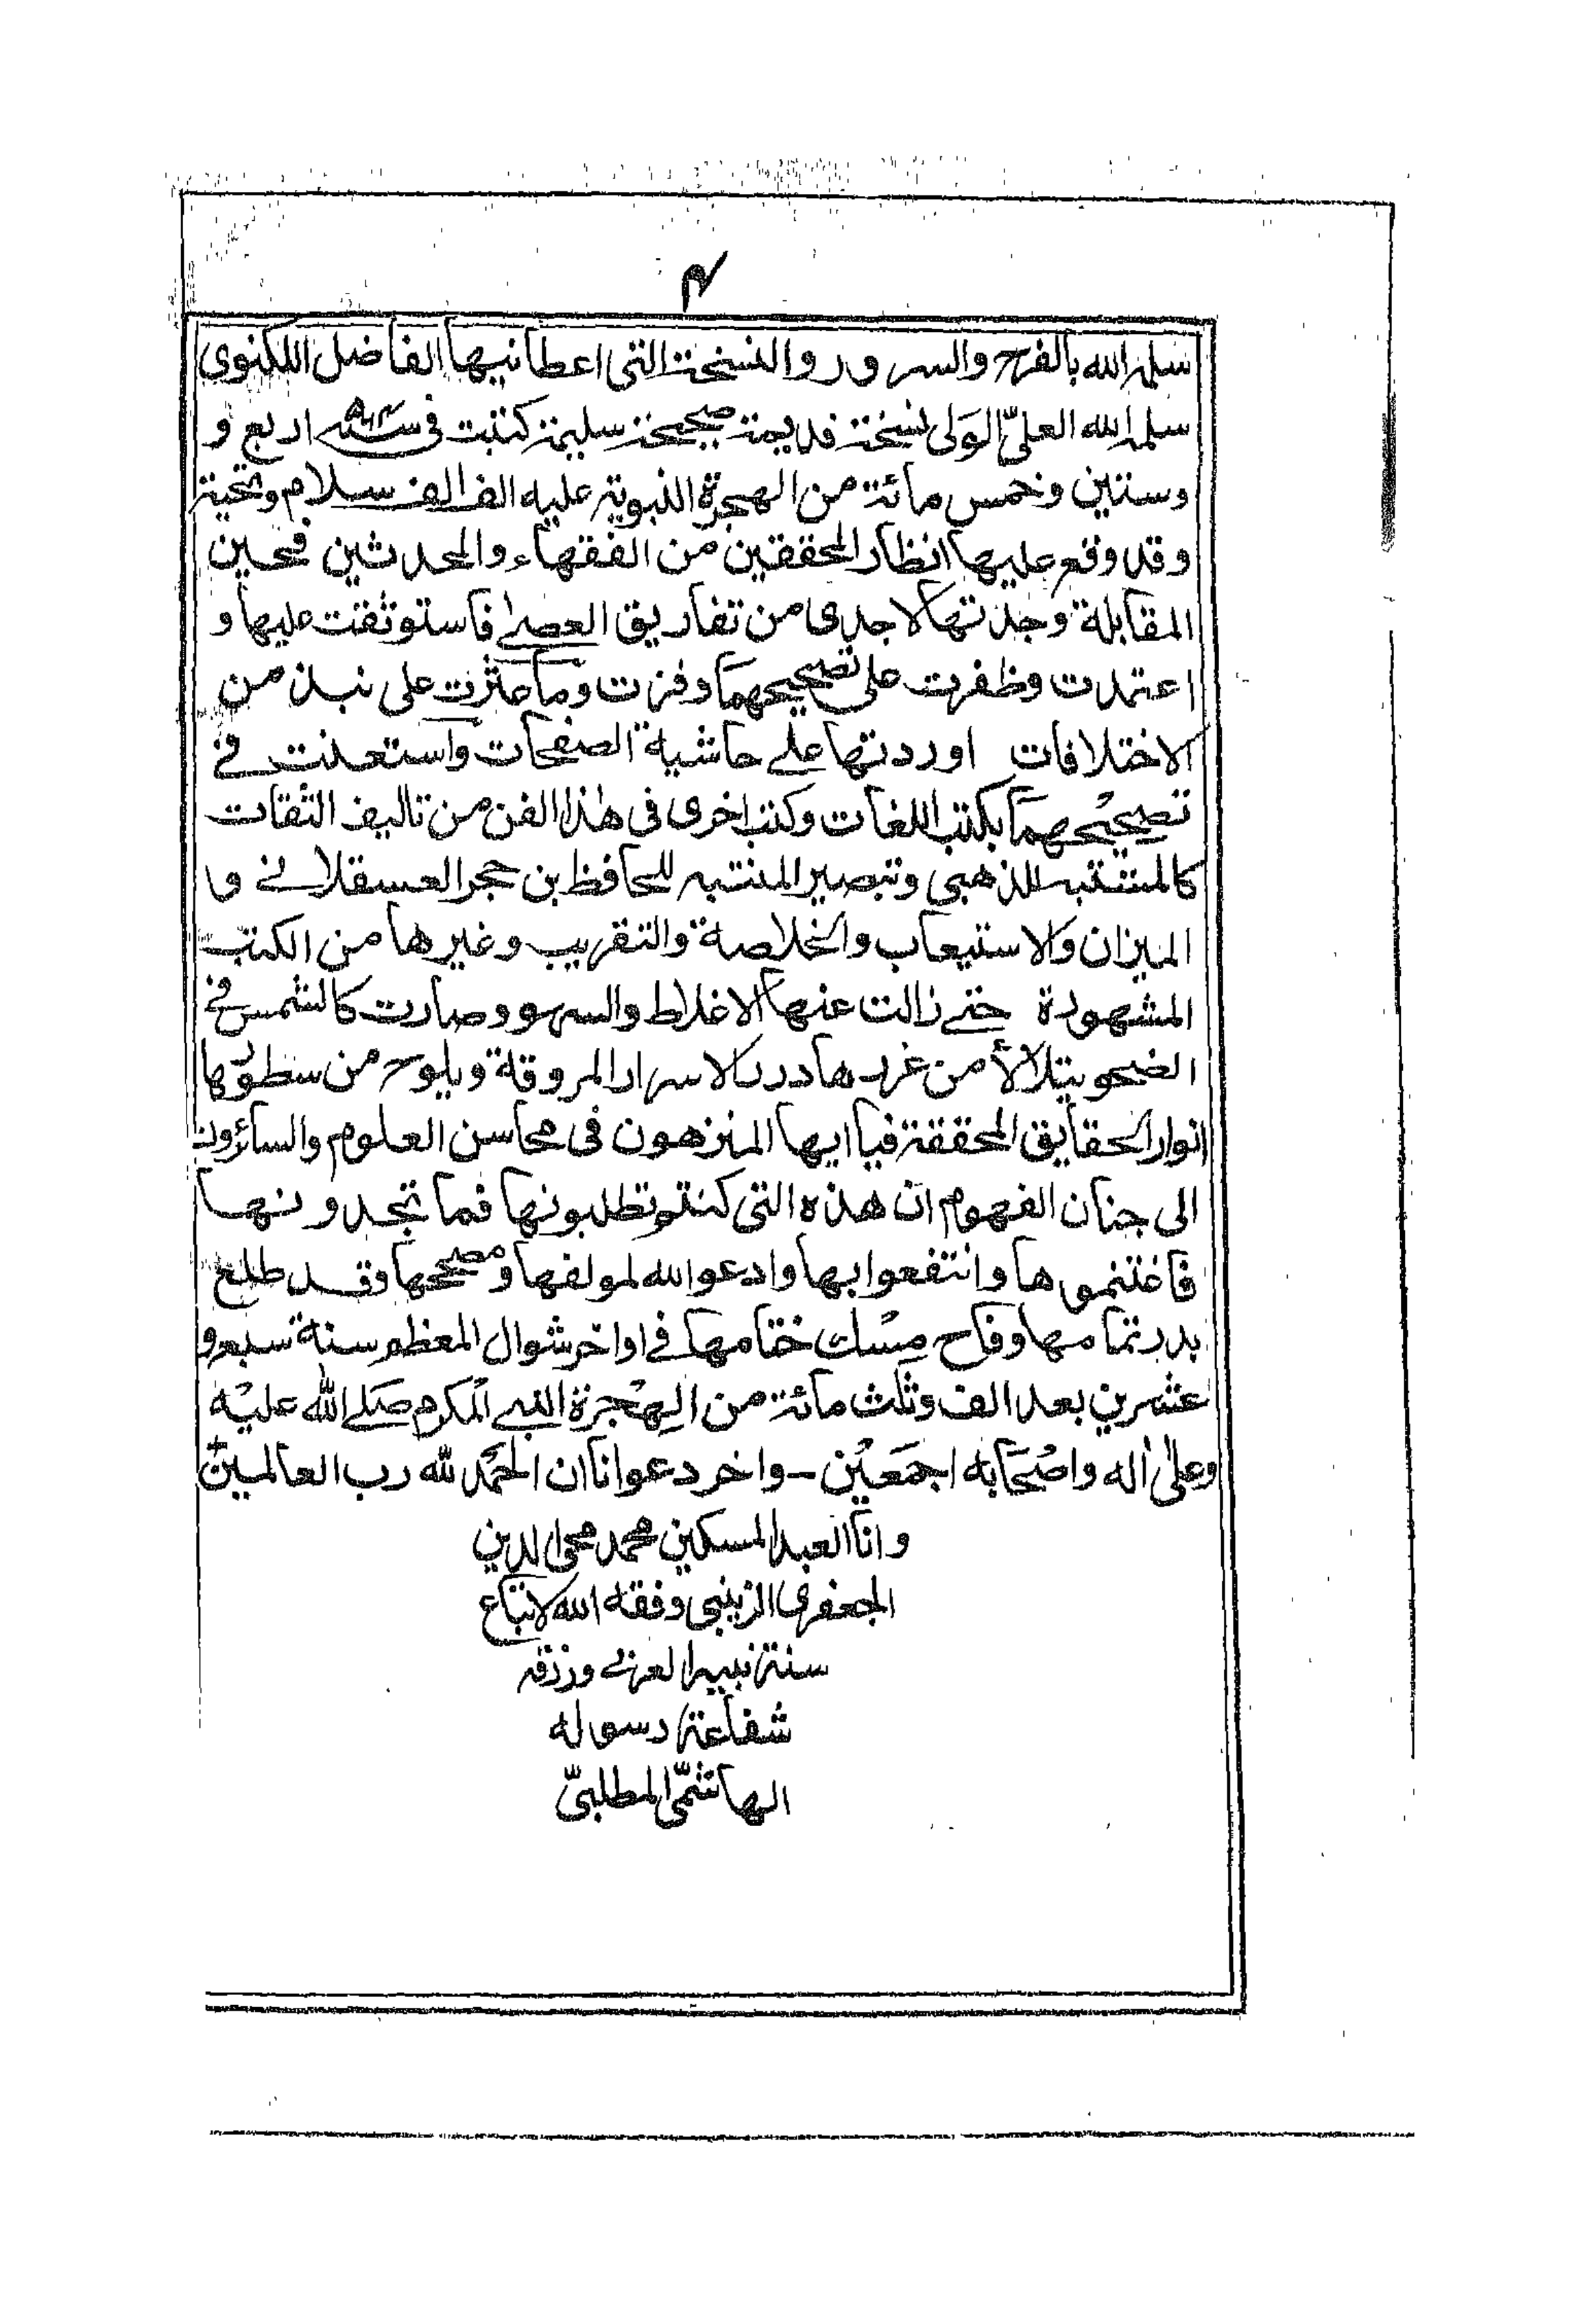 ۴
سلمه الله بالفرح والسرور والنسخة التى اعطانيها الفاضل اللكنوى
سلمه الله العلىّ الولى نسخة قديمة صحيحة سليمة كتبت فى سنة اربع و
وستين وخمس مائة من الهجرة النبوية عليه الف الف سلام وتحية
وقد وقع عليها انظار المحققين من الفقهاء والمحدثين فحين
المقابلة وجدتها لاجدى من تفاريق العصا فاستوثقت عليها و
اعتمدت وظفرت على تصحيحهما وفزت وما عثرت على نبذ من
الاختلافات اوردتها على حاشية الصفحات واستعنت فى
تصحيحهما بكتب اللغات وكتب اخرى فى هذا الفن من تاليف الثقات
كالمشتبه للذهبى وتبصير المنتبه للحافظ بن حجر العسقلانى و
الميزان والاستيعاب والخلاصة والتقريب وغيرها من الكتب
المشهورة حتى زالت عنها الاغلاط والسهو وصارت كالشمس فى
الضحو يتلألأ من غررها درر الاسرار المروقة ويلوح من سطورها
انوار الحقايق المحققة فيا ايها المنزهون فى محاسن العلوم والسائرون
الى جنان الفهوم ان هذه التى كنتم تطلبونها فما تجدونها
فاغتنموها وانتفعوا بها وادعوا الله لمولفها ومصححها وقد طلع
بدر تمامها وفاح مسك ختامها فى اواخر شوال المعظم سنة سبع و
عشرين بعد الف وثلث مائة من الهجرة النبى المكرم صلى الله عليه
وعلىٰ اٰله واصحابه اجمعين - واخر دعوانا ان الحمد لله رب العالمين
وانا العبد المسكين محمد محى الدين
الجعفرى الزينبى وفقه الله لاتباع
سنة نبيه العربى ورزقه
شفاعة رسوله
الهاشمىّ المطلبىّ